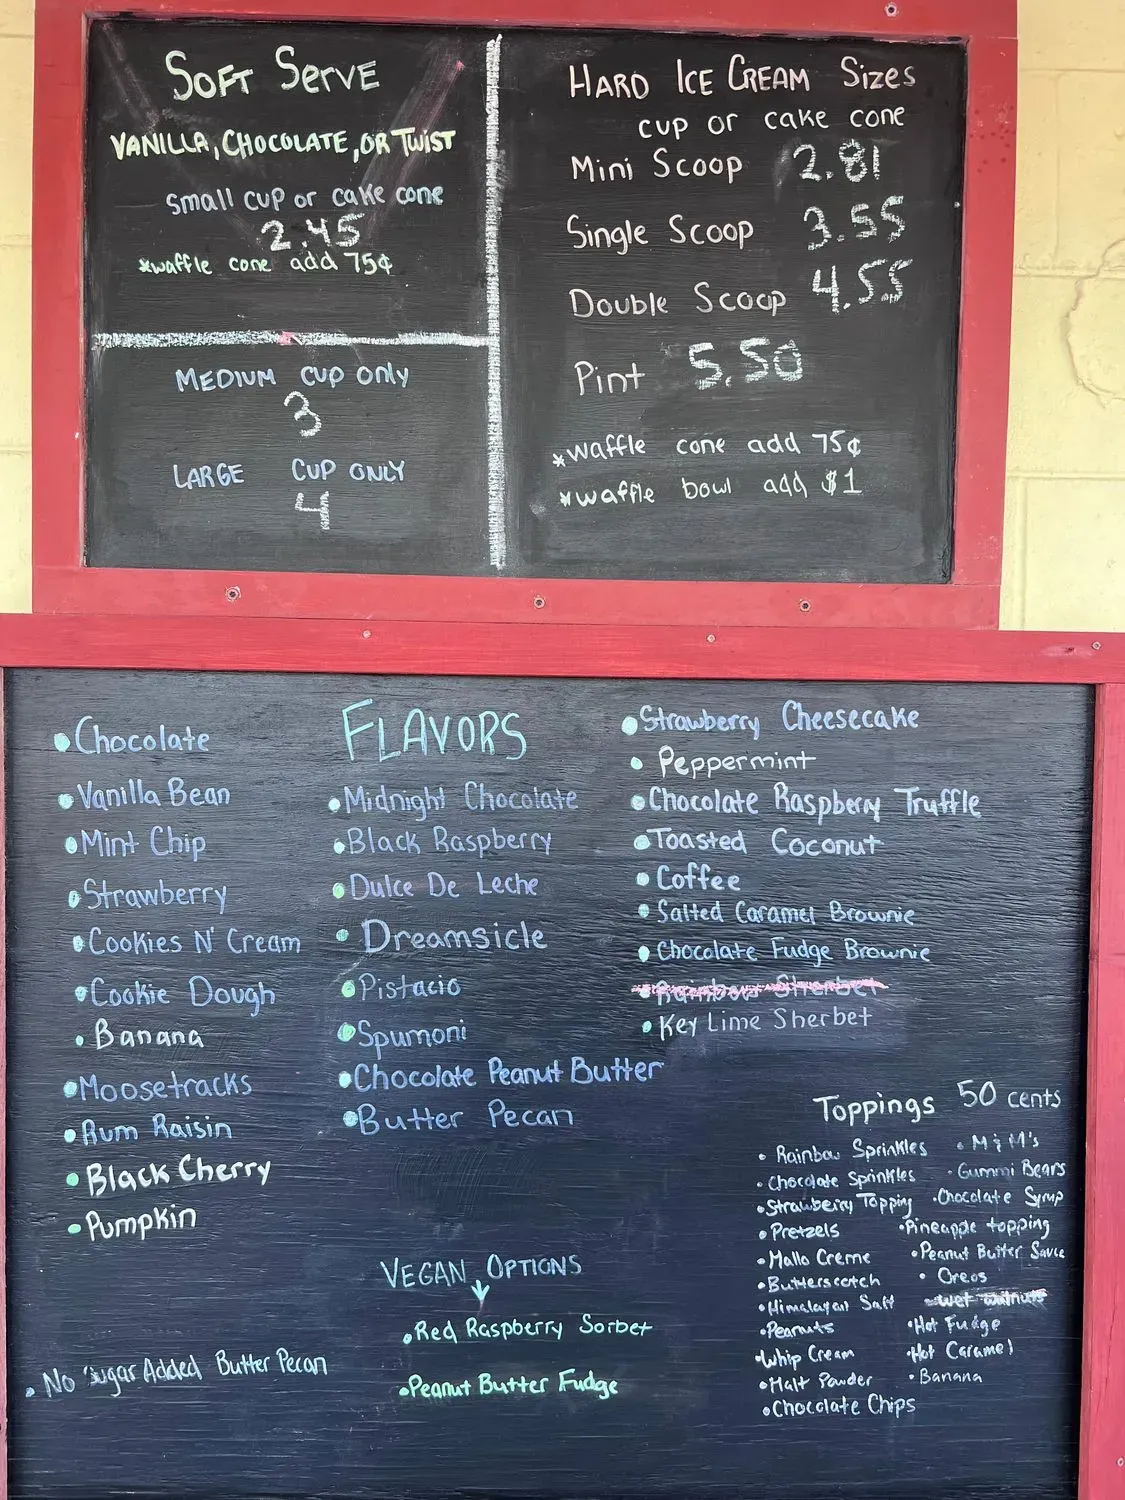 SOFT SERVE
VANILLA, CHOCOLATE, OR TWIST
small cup or cake cone
2.45
*waffle cone add 75¢
MEDIUM CUP ONLY
3
LARGE CUP ONLY
4
HARD ICE CREAM Sizes
cup or cake cone
Mini Scoop 2.81
Single Scoop 3.55
Double Scoop 4.55
Pint 5.50
*waffle cone add 75¢
*waffle bowl add $1
FLAVORS
• Chocolate
• Vanilla Bean
• Mint Chip
• Strawberry
• Cookies N' Cream
• Cookie Dough
• Banana
• Moosetracks
• Rum Raisin
• Black Cherry
• Pumpkin
• No Sugar Added Butter Pecan
• Midnight Chocolate
• Black Raspberry
• Dulce De Leche
• Dreamsicle
• Pistacio
• Spumoni
• Chocolate Peanut Butter
• Butter Pecan
VEGAN OPTIONS
• Red Raspberry Sorbet
• Peanut Butter Fudge
• Strawberry Cheesecake
• Peppermint
• Chocolate Raspberry Truffle
• Toasted Coconut
• Coffee
• Salted Caramel Brownie
• Chocolate Fudge Brownie
• Rainbow Sherbet
• Key Lime Sherbet
Toppings 50 cents
• Rainbow Sprinkles
• Chocolate Sprinkles
• Strawberry Topping
• Pretzels
• Mallo Creme
• Butterscotch
• Himalayan Salt
• Peanuts
• Whip Cream
• Malt Powder
• Chocolate Chips
• M & M's
• Gummi Bears
• Chocolate Syrup
• Pineapple topping
• Peanut Butter Sauce
• Oreos
• wet walnuts
• Hot Fudge
• Hot Caramel
• Banana